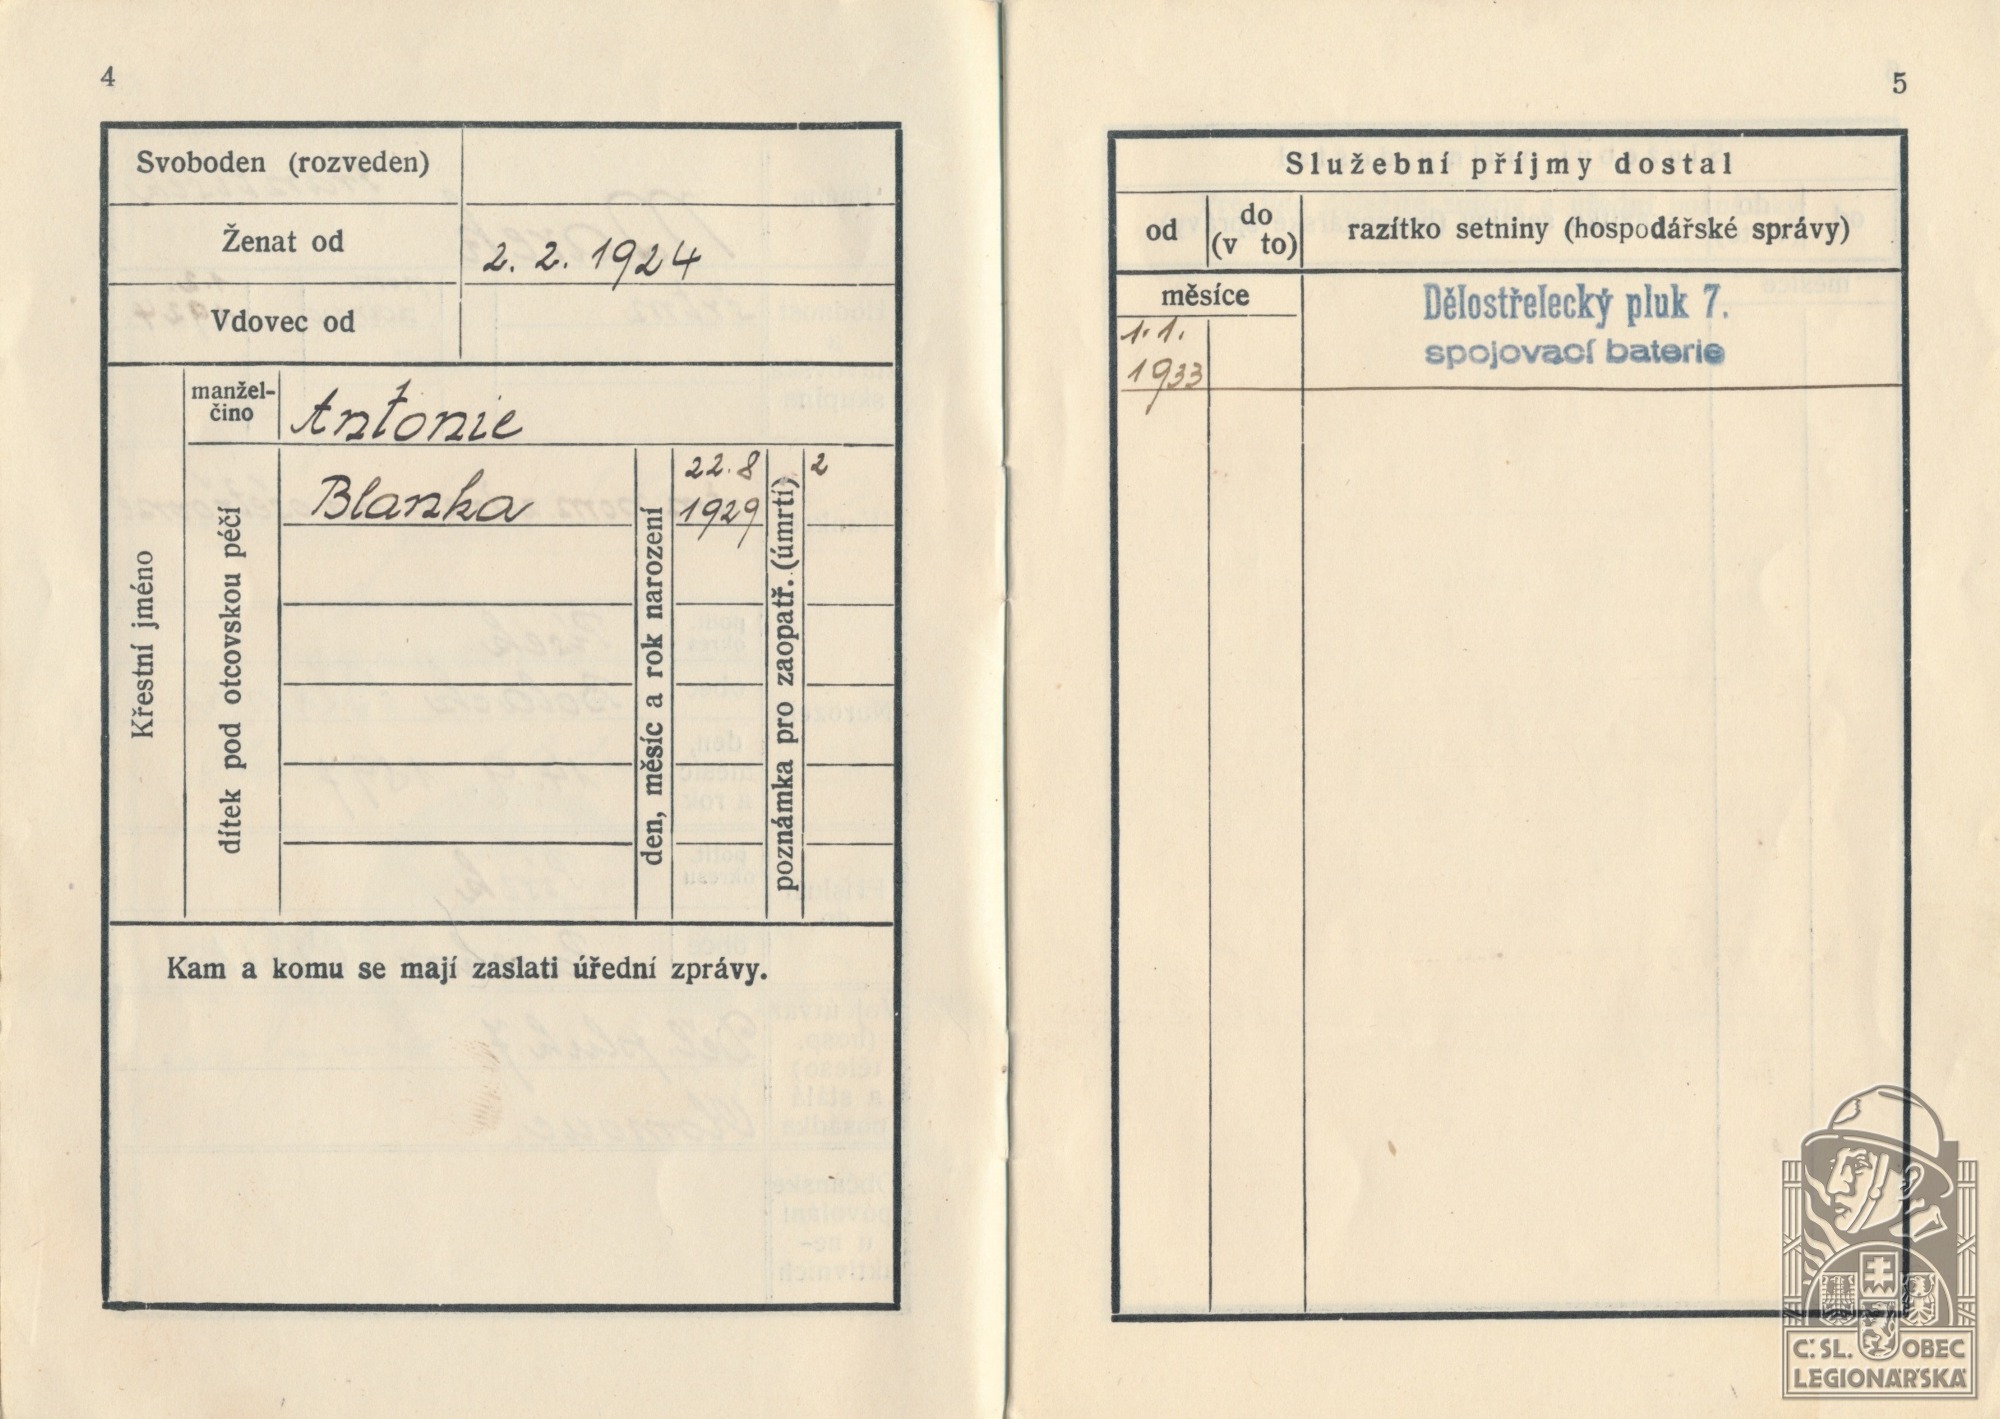 4
Svoboden (rozveden)
Ženat od
2. 2. 1924
Vdovec od
Křestní jméno
manžel-
čino
Antonie
dítek pod otcovskou péčí
Blanka
den, měsíc a rok narození
22. 8
1929
poznámka pro zaopatř. (úmrtí)
2
Kam a komu se mají zaslati úřední zprávy.
5
Služební příjmy dostal
od
do
(v to)
razítko setniny (hospodářské správy)
měsíce
1. 1.
1933
Dělostřelecký pluk 7.
spojovací baterie
Č. SL. OBEC
LEGIONÁŘSKÁ